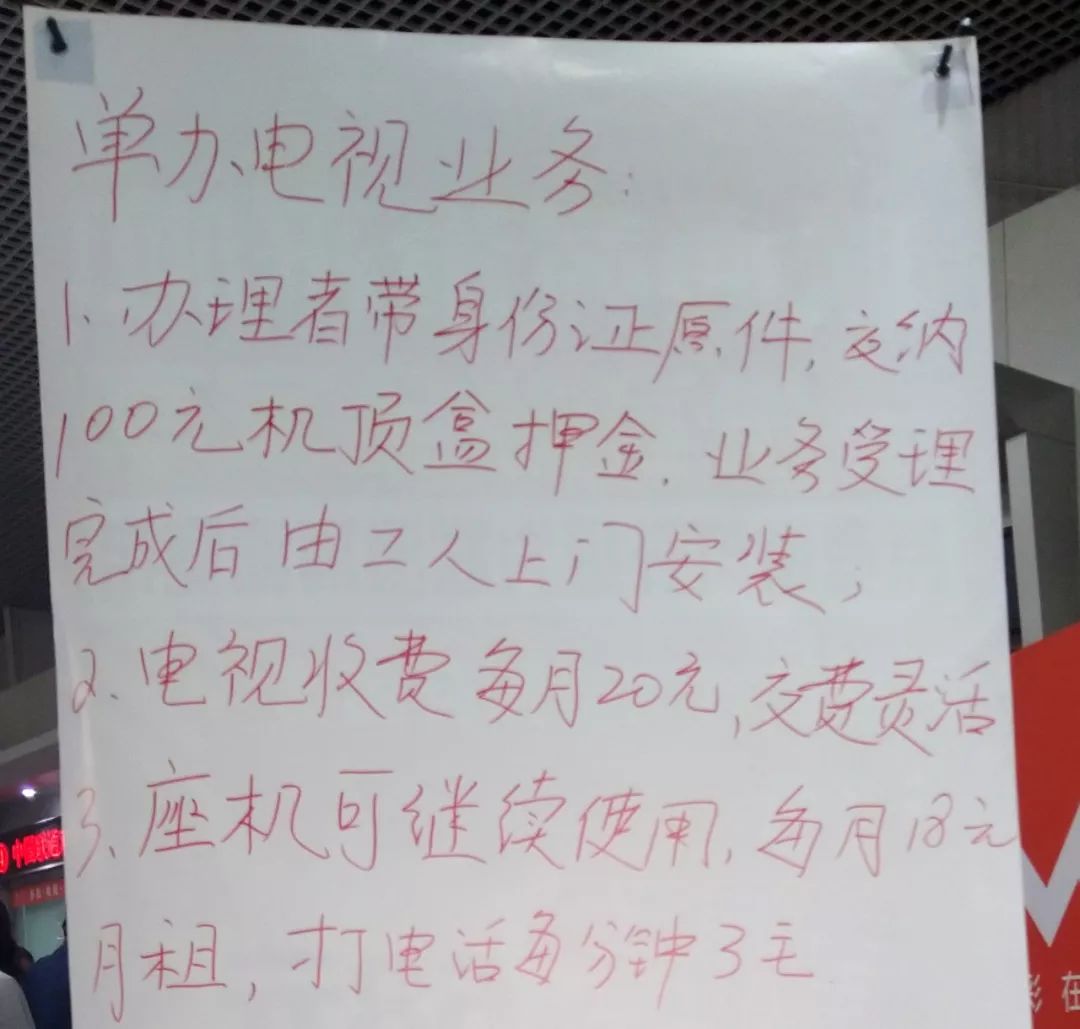 单办电视业务:
1、办理者带身份证原件,交纳
100元机顶盒押金.业务受理
完成后由工人上门安装;
2、电视收费每月20元,交费灵活
3、座机可继续使用,每月18元
月租,打电话每分钟3毛
中国联通
在